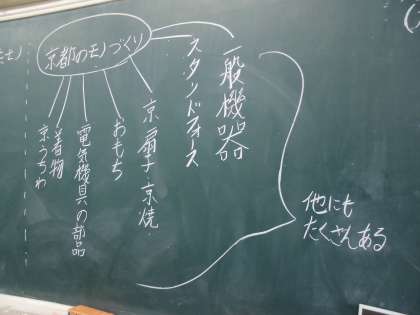 京都のモノづくり
一般機器
スタンドフォース
京扇子 京焼
おもち
電気機具の部品
着物
京うちわ
他にも
たくさんある